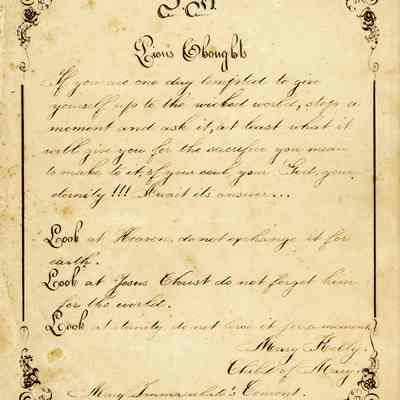 Pious Thought
If you are one day tempted to give
yourself up to the wicked world, stop a
moment and ask it, at least what it
will give you for the sacrifice you mean
to make to it, of your soul, your God, your
eternity!!! Await its answer...
Look at Heaven, do not exchange it for
earth.
Look at Jesus Christ do not forget him
for the world.
Look at eternity do not lose it for a moment
Mary Kelly.
Child of Mary.
Mary Immaculate's Convent.